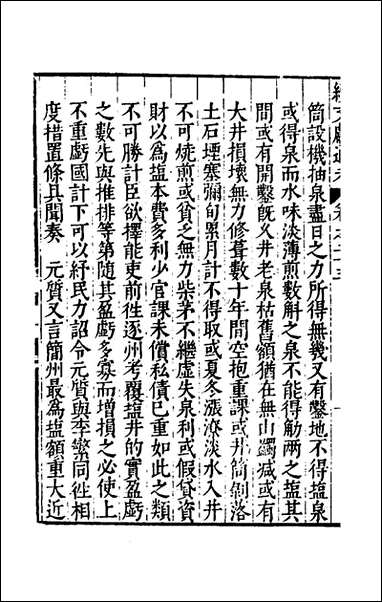 續文獻通考 卷之二十三
筒設機抽泉盡日之力所得無幾又有鑿地不得塩泉
或得泉而水味淡薄煎數斛之泉不能得觔兩之塩其
間或有開鑿旣久井老泉枯舊額猶在無山蠲減或有
大井損壞無力修葺數十年間空抱重課或井筒剝落
土石堙塞彌旬累月計不得取或夏冬漲潦淡水入井
不可燒煎或貧乏無力柴茅不繼虛失泉利或假貸資
財以爲塩本費多利少官課未償私債已重如此之類
不可勝計臣欲擇能吏前徃逐州考覆塩井的實盈虧
之數先與推排等第隨其盈虧多寡而增損之必使上
不重虧國計下可以紓民力詔令元質與李蘩同徃相
度措置條具聞奏 元質又言簡州最爲塩額重大近